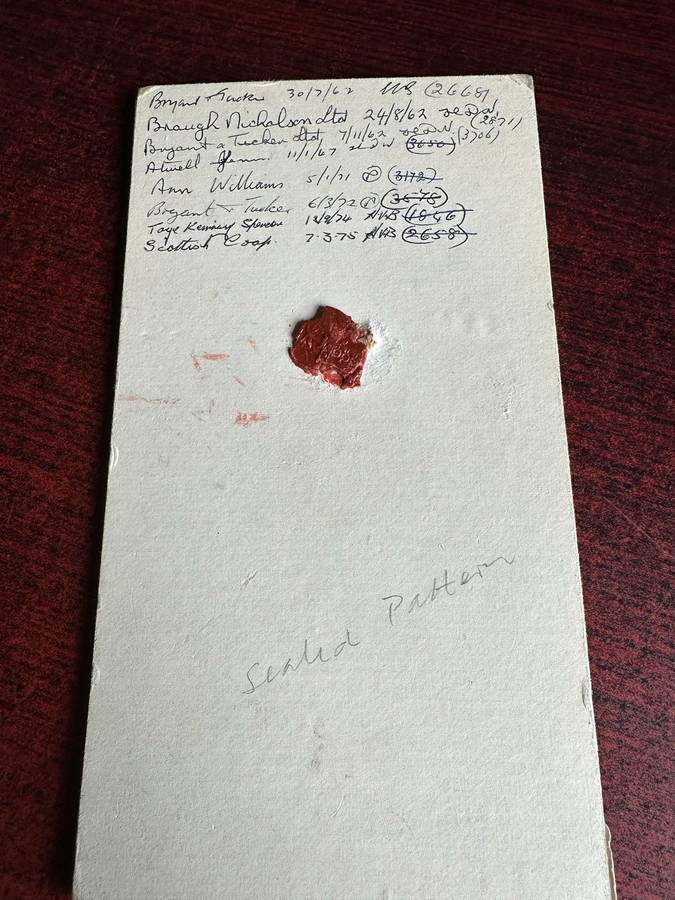 Bryant & Tucker 30/7/62 (2668)
Braugh Nicholson Ltd 24/8/62 (2871)
Bryant & Tucker Ltd 7/11/62 (3706)
Atwell 11/1/67 (3050)
Ann Williams 5/1/71 (3172)
Bryant & Tucker 6/3/72 (3575)
Toye Kenning Spencer 12/8/74 AWB (1856)
Scottish Coop. 7.3.75 AWB (2658)
Sealed Pattern